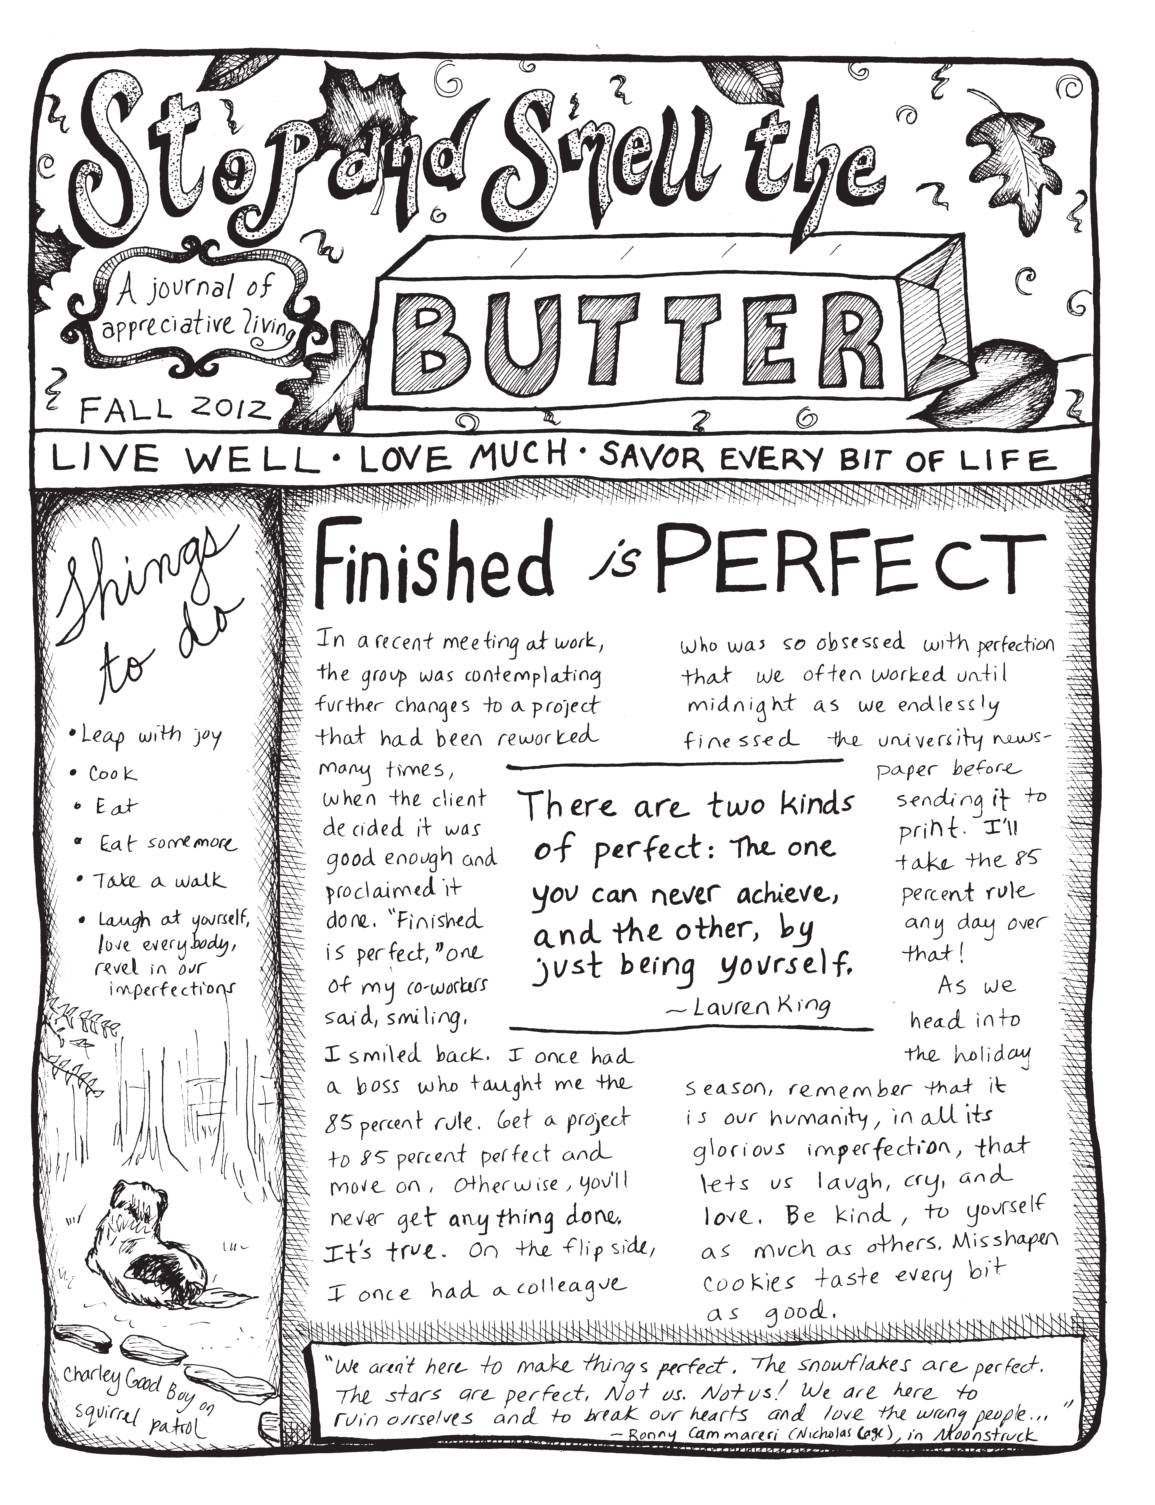 Stop and Smell the
BUTTER
A journal of
appreciative living
FALL 2012
LIVE WELL · LOVE MUCH · SAVOR EVERY BIT OF LIFE
Things
to do
• Leap with joy
• Cook
• Eat
• Eat some more
• Take a walk
• Laugh at yourself,
love everybody,
revel in our
imperfections
Charley Good Boy on
squirrel patrol
Finished is PERFECT
In a recent meeting at work,
the group was contemplating
further changes to a project
that had been reworked
many times,
when the client
decided it was
good enough and
proclaimed it
done. "Finished
is perfect," one
of my co-workers
said, smiling.
I smiled back. I once had
a boss who taught me the
85 percent rule. Get a project
to 85 percent perfect and
move on. Otherwise, you'll
never get anything done.
It's true. On the flip side,
I once had a colleague
There are two kinds
of perfect: The one
you can never achieve,
and the other, by
just being yourself.
~ Lauren King
who was so obsessed with perfection
that we often worked until
midnight as we endlessly
finessed the university news-
paper before
sending it to
print. I'll
take the 85
percent rule
any day over
that!
As we
head into
the holiday
season, remember that it
is our humanity, in all its
glorious imperfection, that
lets us laugh, cry, and
love. Be kind, to yourself
as much as others. Misshapen
cookies taste every bit
as good.
"We aren't here to make things perfect. The snowflakes are perfect.
The stars are perfect. Not us. Not us! We are here to
ruin ourselves and to break our hearts and love the wrong people..."
— Ronny Cammareri (Nicholas Cage), in Moonstruck